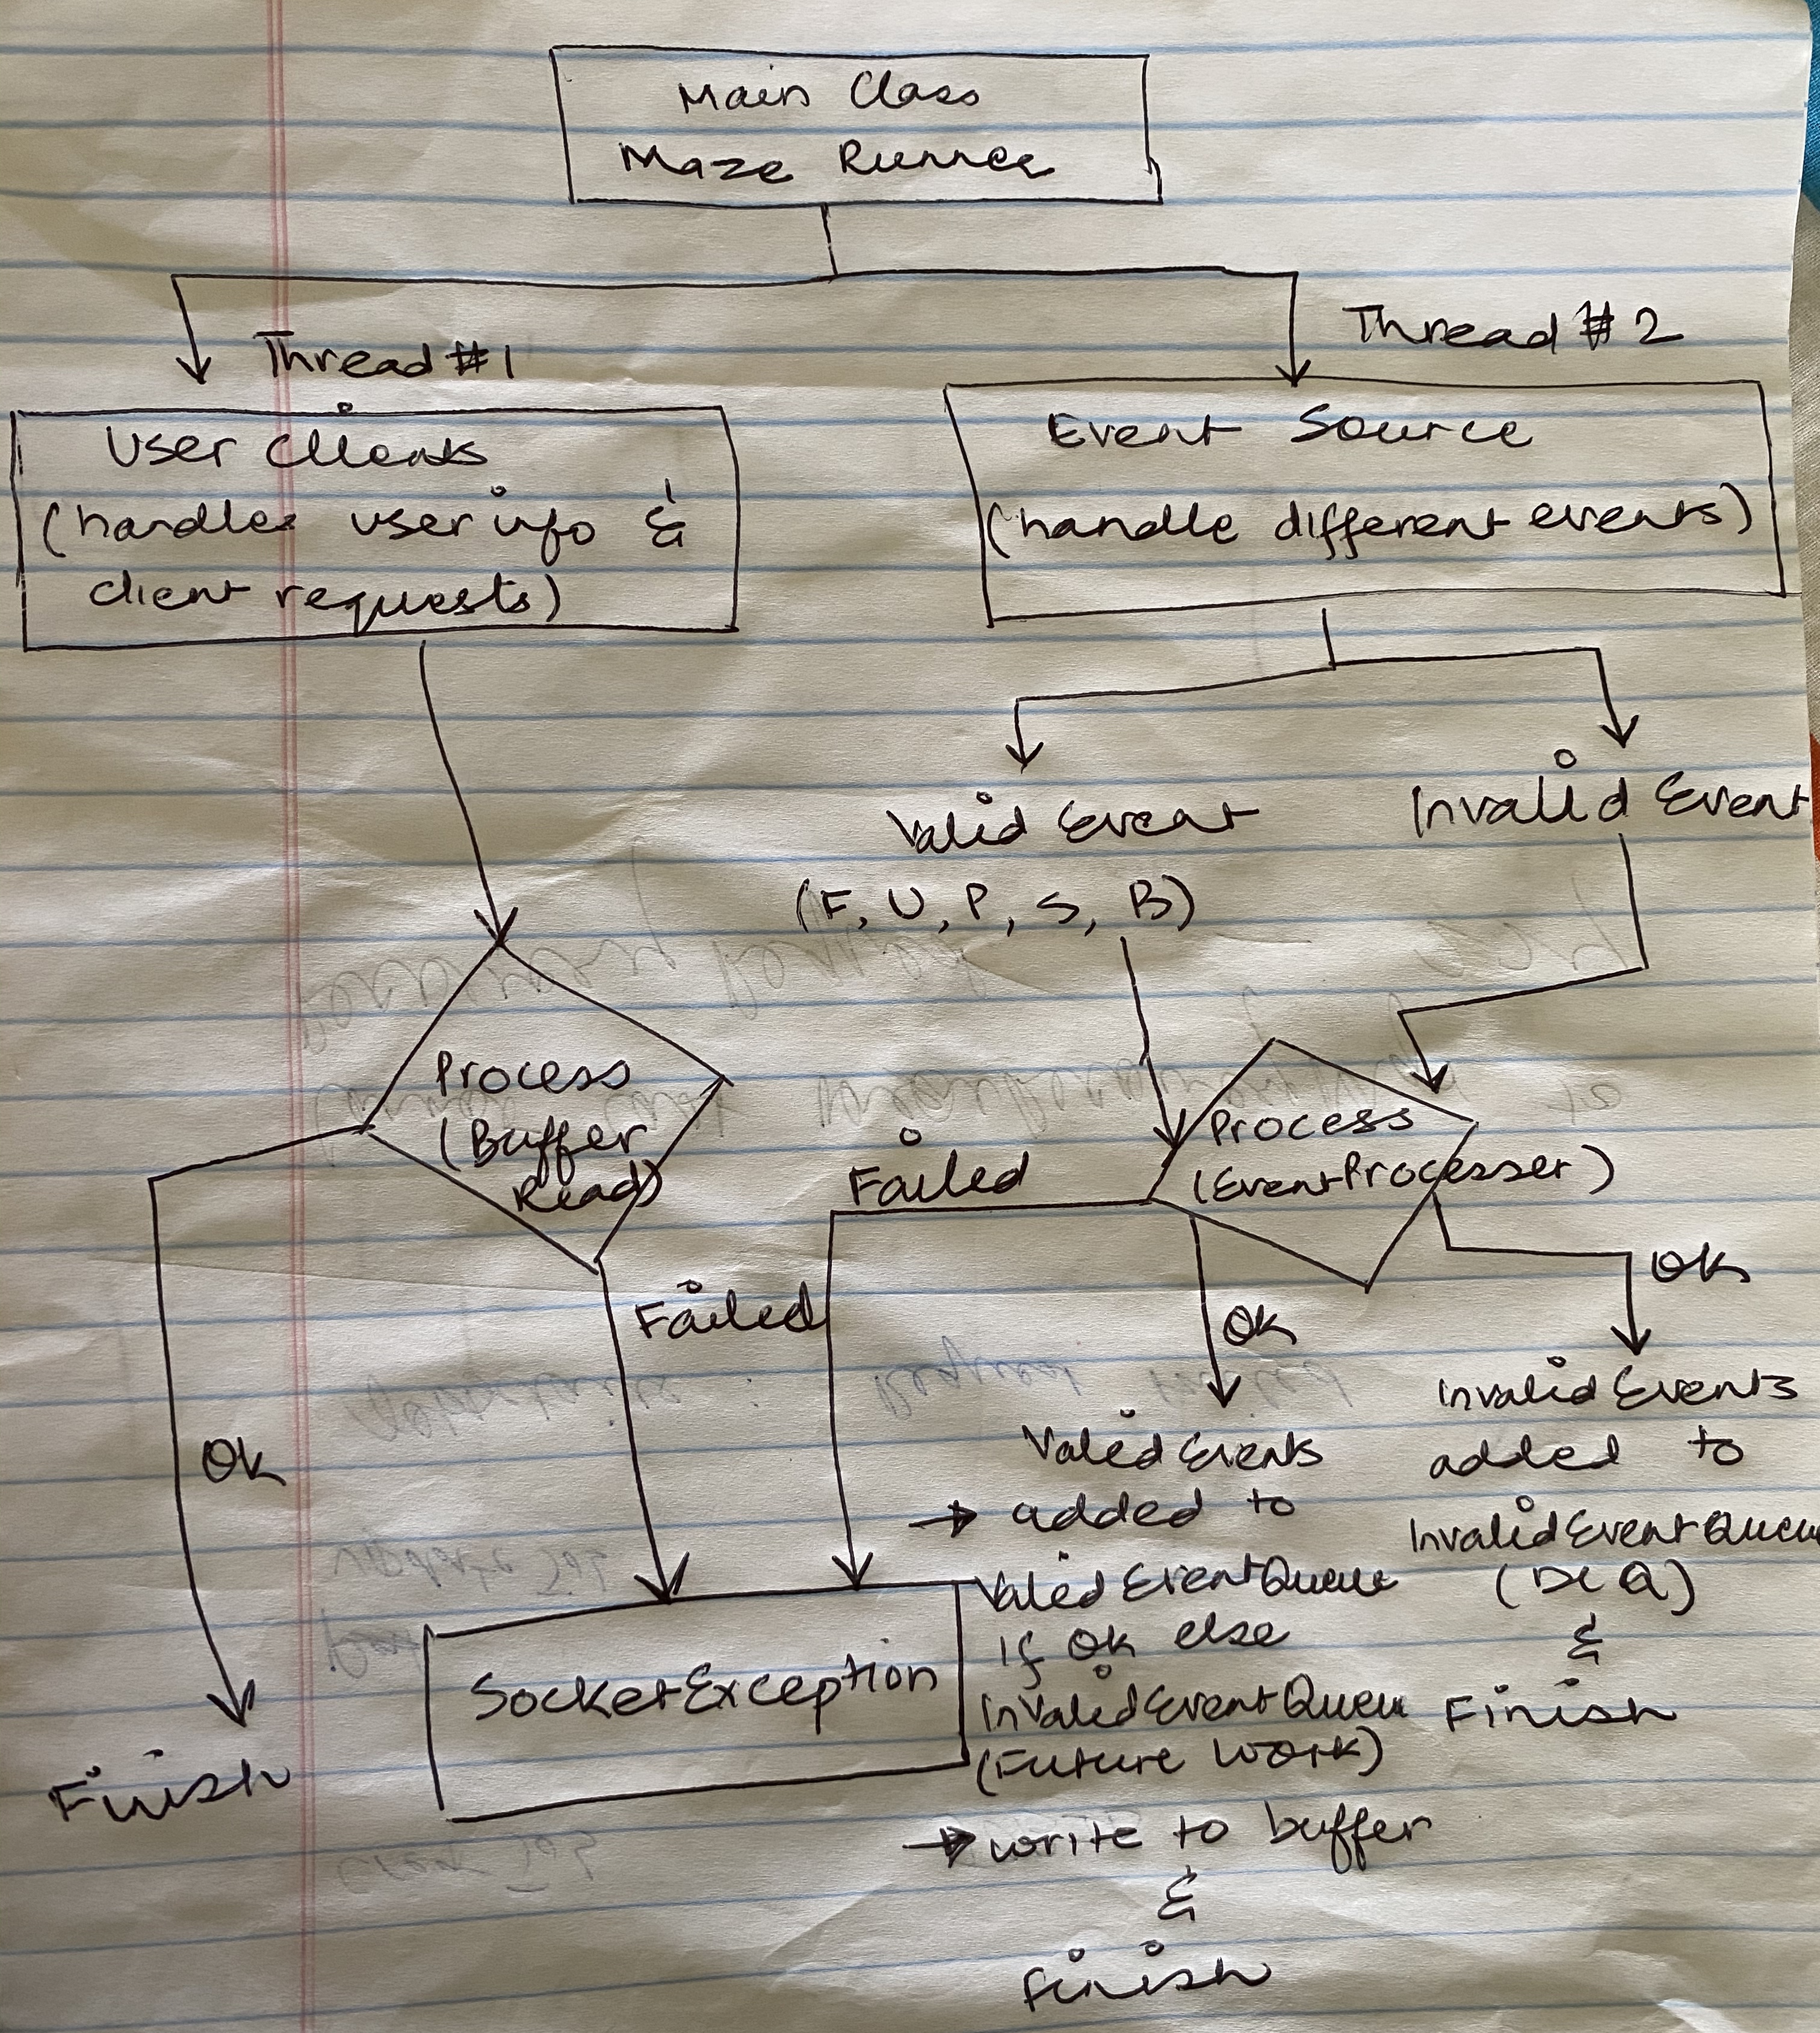 Main Class
Maze Runner
Thread #1
Thread # 2
User Clients
(handles user info &
client requests)
Event Source
(handle different events)
Valid Event
(F, U, P, S, B)
Invalid Event
Process
(Buffer
Read)
Process
(EventProcesser)
Failed
Failed
OK
OK
OK
Finish
SocketException
Valid Events
→ added to
Valid EventQueue
If OK else
InvalidEventQueu
(Future Work)
→ write to buffer
&
finish
Invalid Events
added to
InvalidEventQueu
(DLQ)
&
Finish